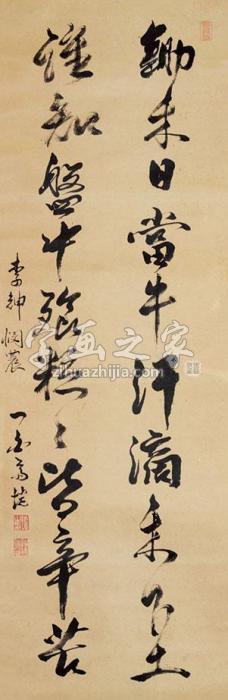 鋤禾日當午汗滴禾下土
誰知盤中飧粒々皆辛苦
李紳憫農
字画之家
zihuazhijia.com